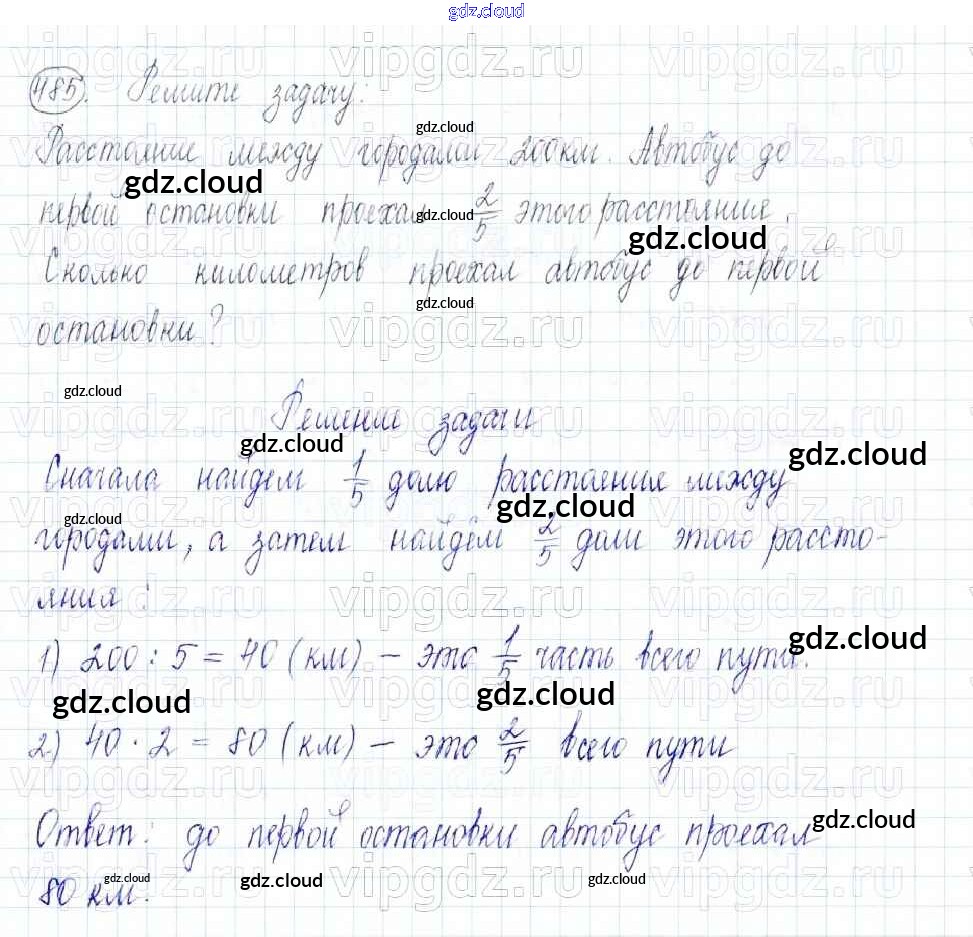 gdz.cloud
vipgdz.ru vipgdz.ru vipgdz.ru
485. Решите задачу:
gdz.cloud
Расстояние между городами 200 км. Автобус до
gdz.cloud
первой остановки проехал 2/5 этого расстояния.
gdz.cloud
gdz.cloud
Сколько километров проехал автобус до первой
gdz.cloud
остановки?
vipgdz.ru vipgdz.ru vipgdz.ru
gdz.cloud
Решение задачи
vipgdz.ru vipgdz.ru vipgdz.ru
gdz.cloud
gdz.cloud
Сначала найдем 1/5 долю расстояния между
gdz.cloud
gdz.cloud
городами, а затем найдём 2/5 доли этого рассто-
яния:
vipgdz.ru vipgdz.ru vipgdz.ru
gdz.cloud
1) 200 : 5 = 40 (км) – это 1/5 часть всего пути.
gdz.cloud gdz.cloud
2) 40 · 2 = 80 (км) – это 2/5 всего пути
vipgdz.ru vipgdz.ru vipgdz.ru
gdz.cloud
Ответ: до первой остановки автобус проехал
gdz.cloud gdz.cloud gdz.cloud
80 км.
vipgdz.ru vipgdz.ru vipgdz.ru